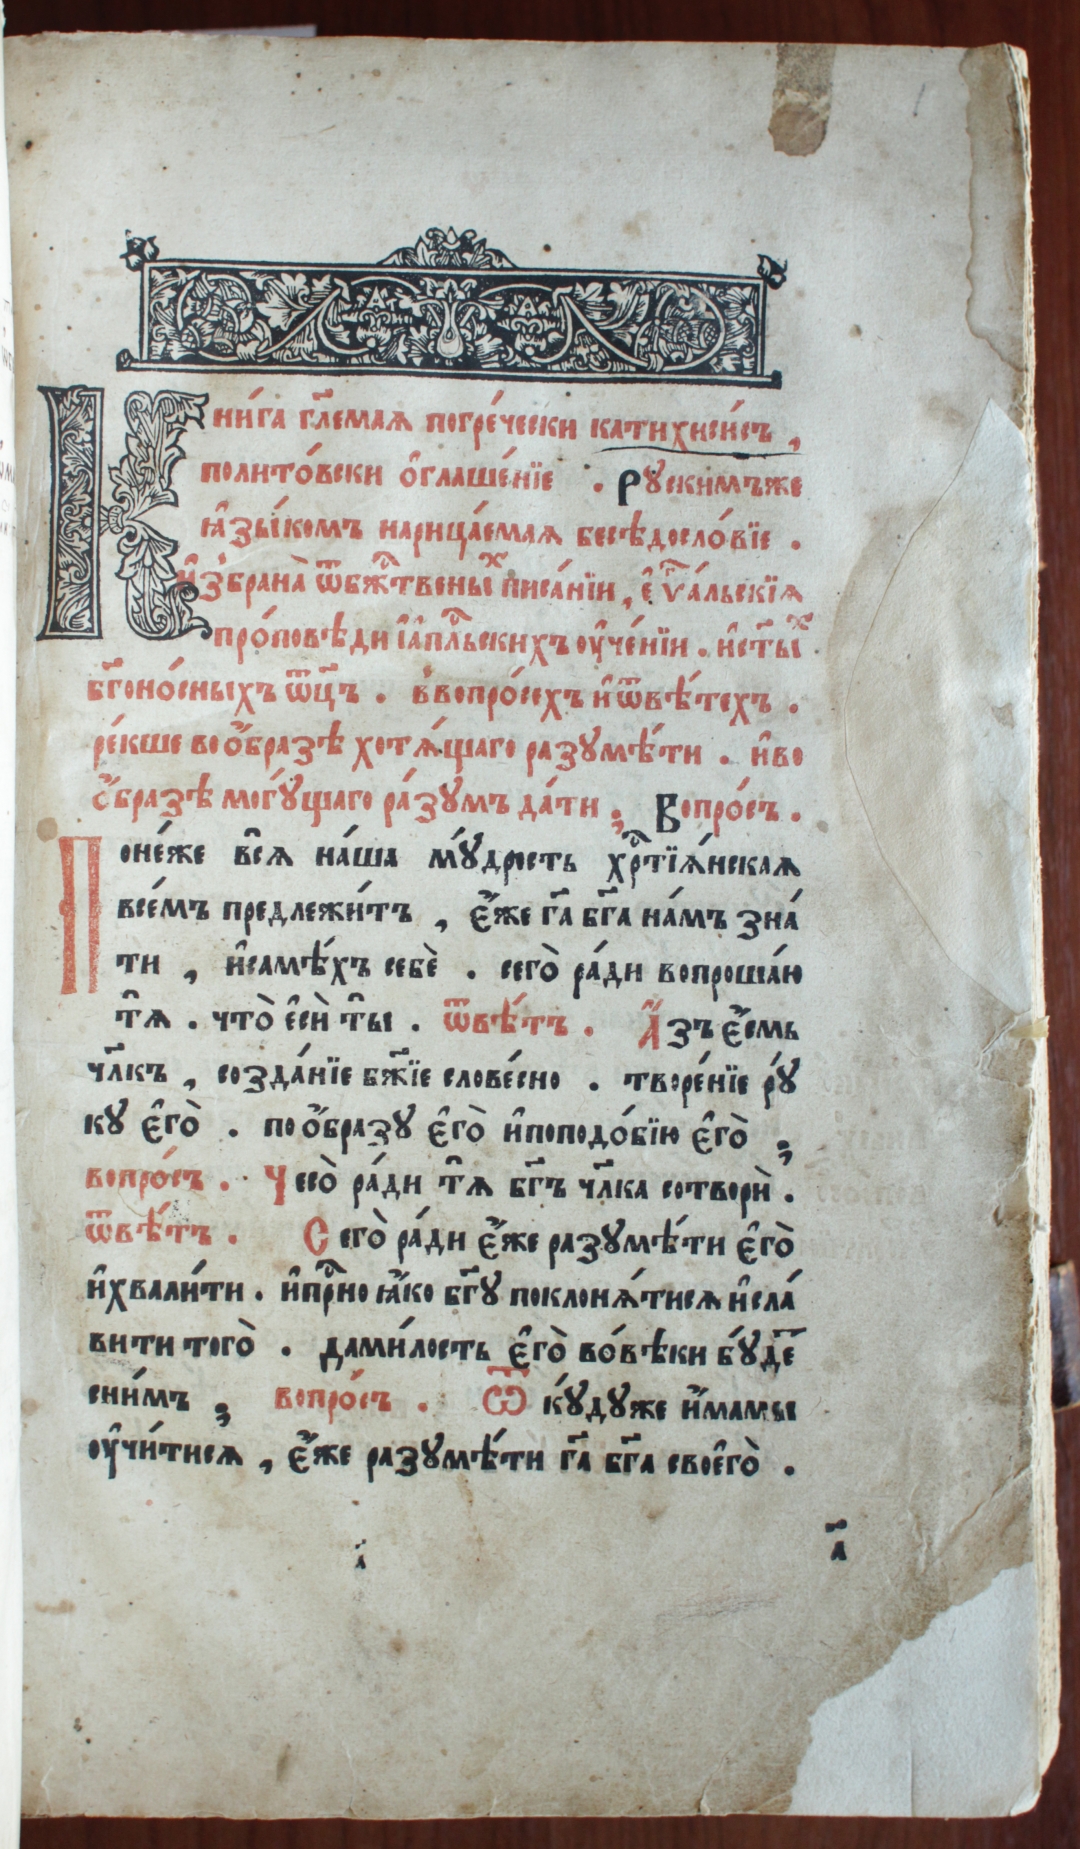 Кни́га гл҃емаѧ погре́чески катихиси́съ ,
полито́вски ѻ҆глаше́нїе . Рꙋскимъже
ꙗ҆зы́комъ нарица́емаѧ бесѣдосло́вїе .
и҆збрана̀ ѿбжⷭ҇твены́ⷯ писа́нїи , є҆ѵⷢ҇а́льскїѧ
про́повѣди їа҆пⷭ҇льскихъ оу҆че́нїи . и҆ст҃ы́ⷯ .
бг҃оно́сныхъ ѿц҃ъ . ввопро́сехъ и҆ѿвѣ́техъ .
ре́кше воѻ҆́бразѣ хотѧ́щаго разꙋмѣ́ти . и҆во
ѻ҆́бразѣ могꙋ́щаго ра́зꙋмъ да́ти ; Вопро́съ .
Поне́же всѧ̑ на́ша мꙋ́дрость хрⷭ҇тїѧ́нскаѧ
все́мъ предлежи́тъ , є҆́же гд҃а бг҃а на́мъ зна́
ти , и҆самѣ́хъ себѐ . сего̀ ра́ди вопроша́ю
тѧ̑ . что̀ є҆сѝ ты̑ . Ѿвѣ́тъ . А҆́зъ є҆́смь
чл҃къ , созда́нїе бж҃їе слове́сно . творе́нїе рꙋ́
кꙋ є҆го̀ . поѻ҆́бразꙋ є҆го̀ и҆поподо́бїю є҆го̀ ;
вопро́съ . Чесо̀ ра́ди тѧ̑ бг҃ъ чл҃ка сотворѝ .
Ѿвѣ́тъ . Сего̀ ра́ди є҆́же разꙋмѣ́ти є҆го̀
и҆хвали́ти . и҆прⷭ҇но ꙗ҆́ко бг҃ꙋ поклонѧ́тисѧ и҆сла́
вити того̀ . дами́лость є҆го̀ во́вѣки бꙋ́деⷮ
сни́мъ ; вопро́съ . Ѿ кꙋ́дꙋже и҆́мамы
оу҆чи́тисѧ , є҆́же разꙋмѣ́ти гд҃а бг҃а своего̀ .
а҃
а҃